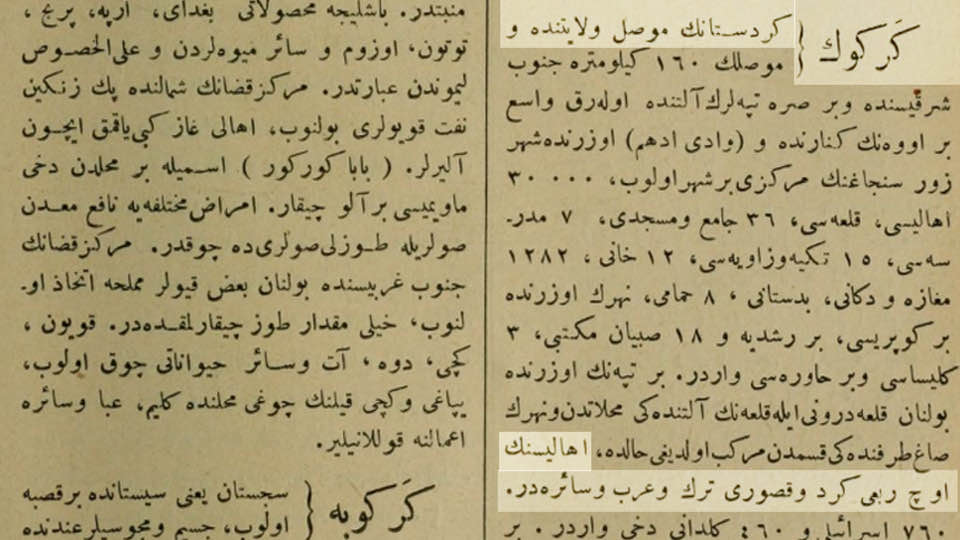 كَركوك } كردستانك موصل ولايتنده و
موصلك ١٦٠ كيلومتره جنوب
شرقيسنده وبر صره تپه‌لرك آلتنده اوله‌رق واسع
بر اووه‌نك كنارنده و (وادی ادهم) اوزرنده شهر
زور سنجاغنك مركزی بر شهر اولوب، ٣٠٠٠٠
اهاليسی، قلعه‌سی، ٣٦ جامع ومسجدی، ٧ مدر-
سه‌سی، ١٥ تكيه وزاويه‌سی، ١٢ خانی، ١٢٨٢
مغازه و دكانی، بدستانی، ٨ حمامی، نهرك اوزرنده
بر كوپريسی، بر رشديه و ١٨ صبيان مكتبی، ٣
كليساسی وبر حاوره‌سی واردر. بر تپه‌نك اوزرنده
بولنان قلعه درونی ايله قلعه‌نك آلتنده‌كی محلاتدن ونهرك
صاغ طرفنده‌كی قسمدن مركب اولديغی حالده، اهاليسنك
اوچ ربعی كرد وقصوری ترك وعرب وسائره‌در.
٧٦٠ اسرائيلی و ٤٦٠ كلدانی دخی واردر. بر
منبتدر. باشليجه محصولاتی بغدای، آرپه، پرنج،
توتون، اوزوم و سائر ميوه‌لردن و علی‌الخصوص
ليموندن عبارتدر. مركز قضانك شمالنده پك زنكين
نفت قويولری بولنوب، اهالی غاز كبی ياقمق ايچون
آليرلر. (بابا كوركور) اسميله بر محلدن دخی
ماويميسی بر آلو چيقار. امراض مختلفه‌يه نافع معدن
صولريله طوزلی صولری ده چوقدر. مركز قضانك
جنوب غربيسنده بولنان بعض قيولر مملحه اتخاذ او-
لنوب، خيلی مقدار طوز چيقارلمقده‌در. قويون،
كچی، دوه، آت وسائر حيواناتی چوق اولوب،
يپاغی وكچی قيلنك چوغی محلنده كليم، عبا وسائره
اعمالنه قوللانيلير.
كَركويه } سجستان يعنی سيستانده بر قصبه
اولوب، جسيم ومجوسيلر عندنده